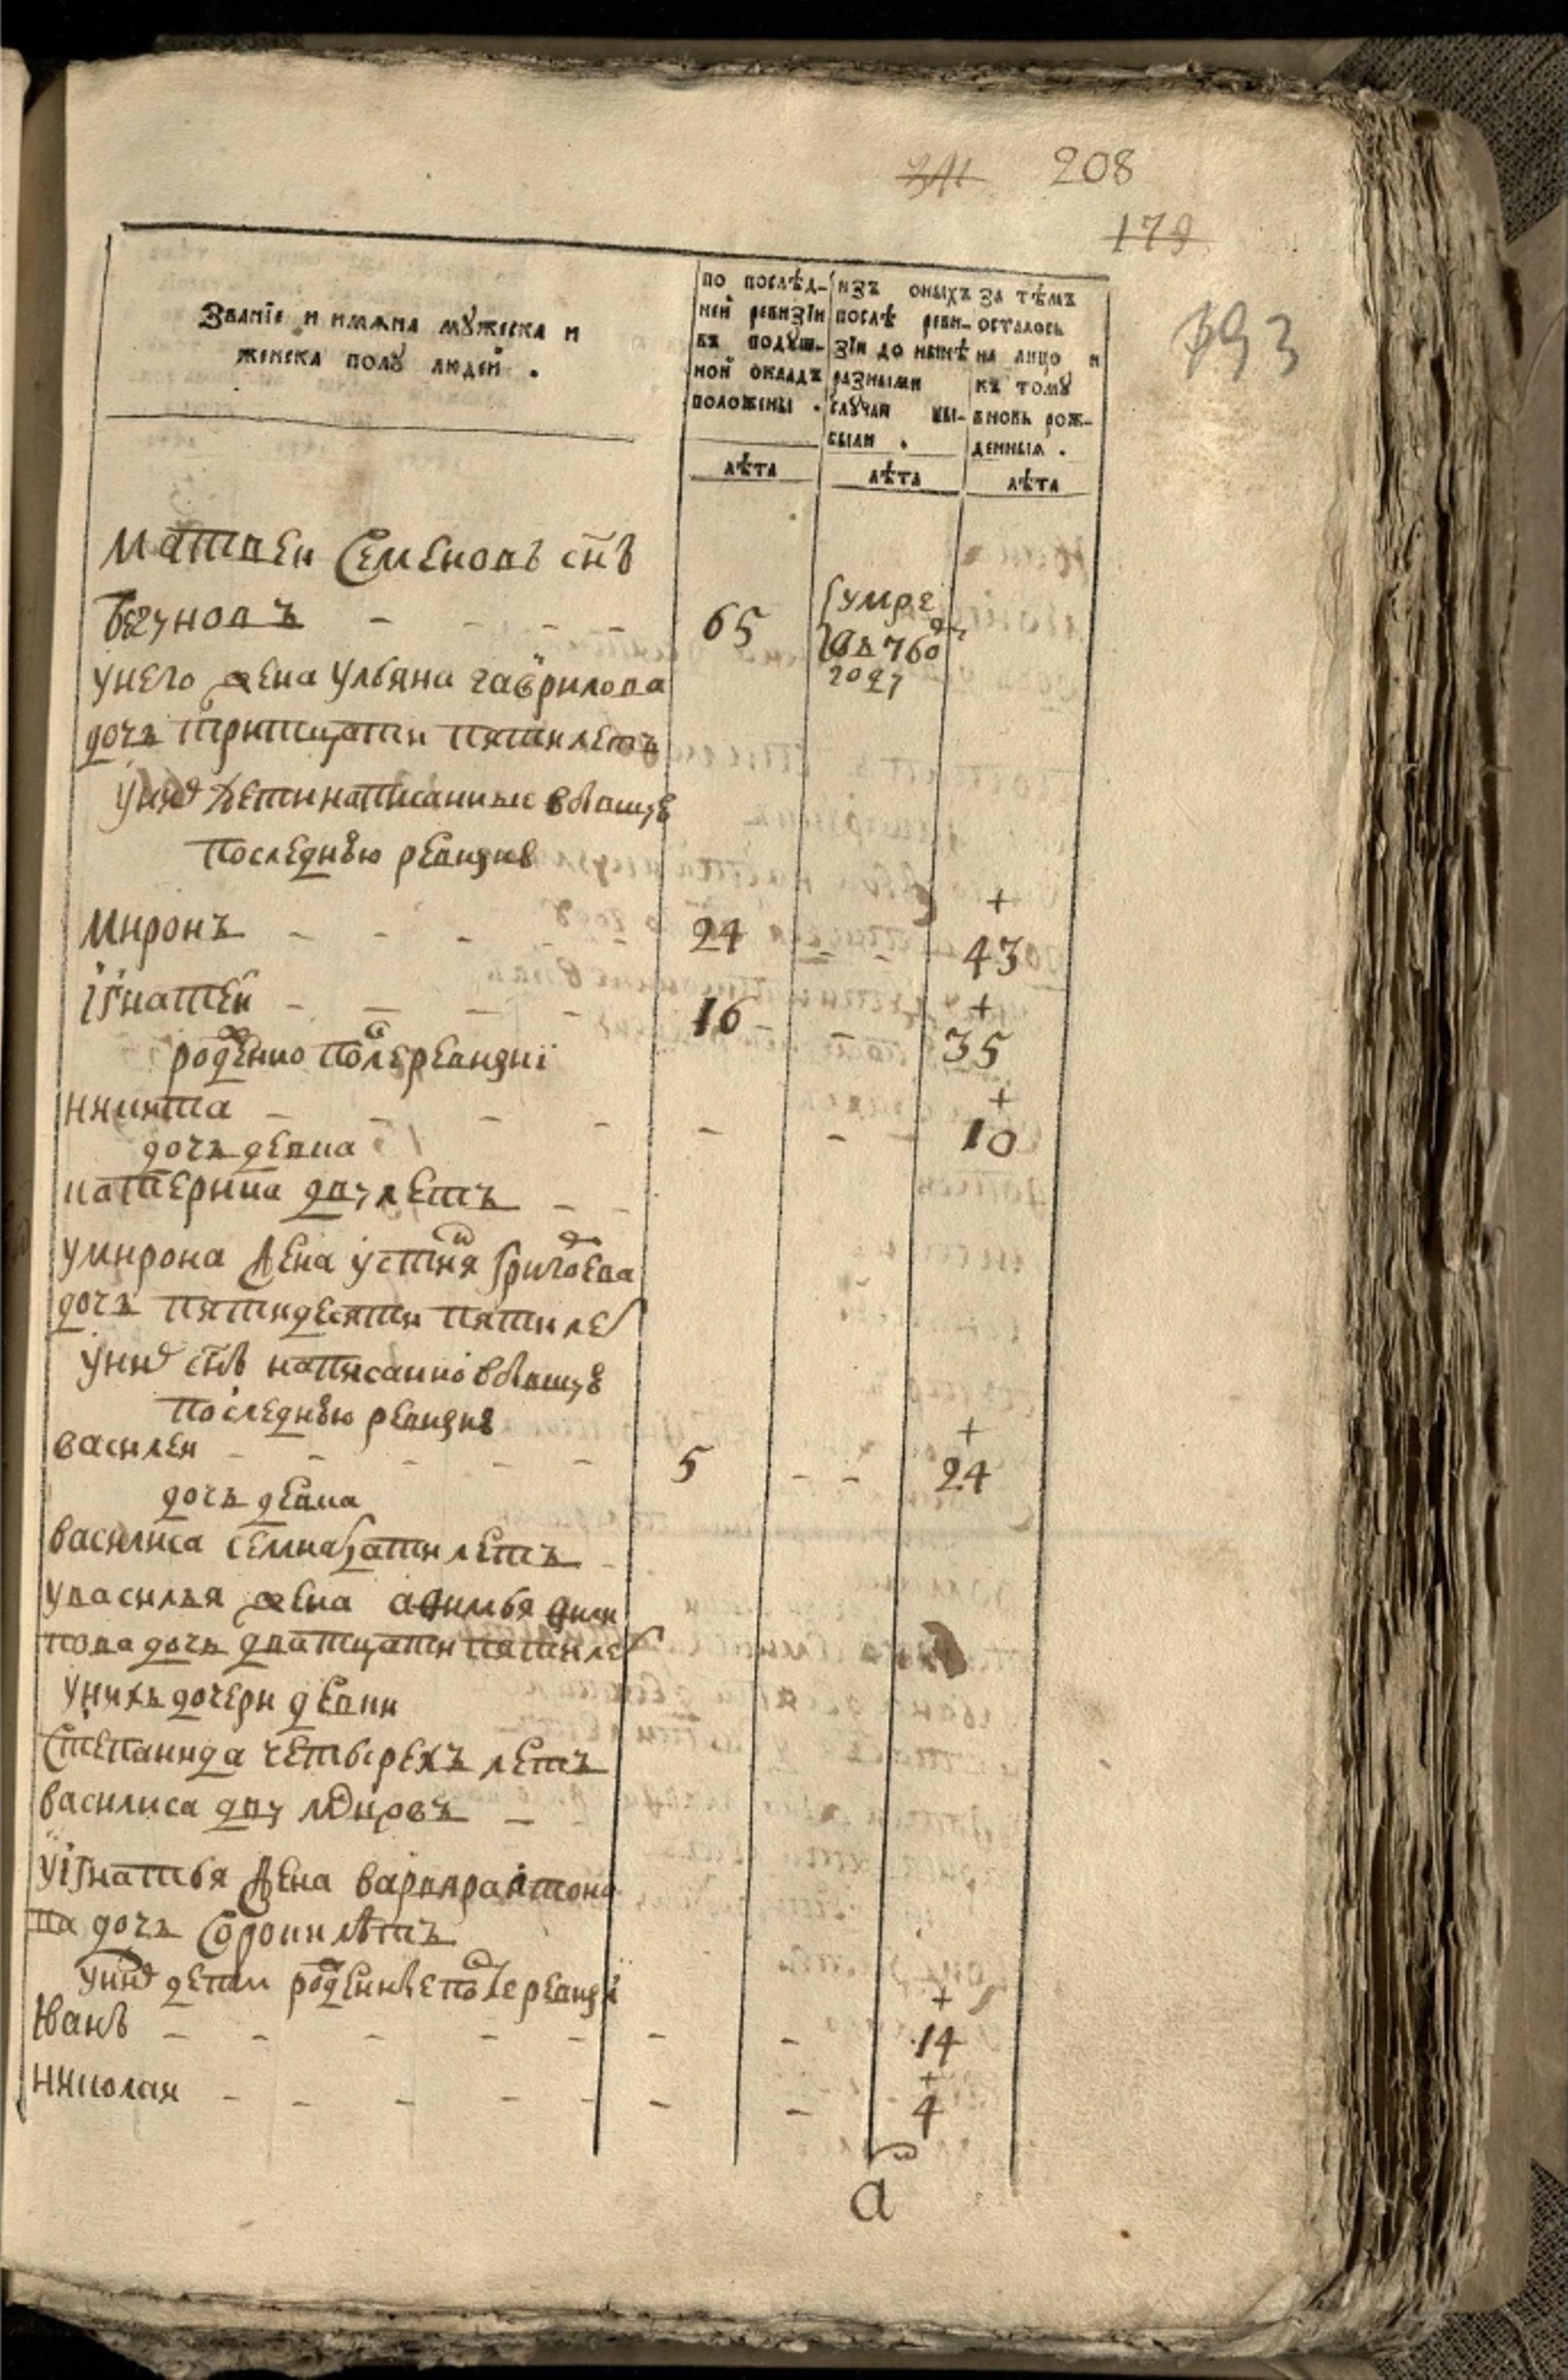 208
179
393
Званїе и имѧна мꙋжеска и
женска полꙋ людей .
по послѣд-
ней ревизїи
въ подꙋш-
ной окладъ
положены .
лѣта
изъ оныхъ
послѣ реви-
зїи до нынѣ
разными
слꙋчаи вы-
были .
лѣта
за тѣмъ
осталось
на лицо и
къ томꙋ
вновь рож-
денныѧ .
лѣта
матвеи Семеновъ снъ
Бегуновъ - - - - 65 умре
въ 760 м
году
унего жена ульяна гаврилова
дочь тритцати пятилетъ
униⷯ дети написанные вбывшую
последнюю ревизию
миронъ - - - - 24 - - + 43
игнатеи - - - - 16 - - + 35
рожⷣенно после ревизиї
никита - - - - - - + 10
дочь девка
катерина двулетъ - -
умирона жена устиня григоⷬева
дочь пятидесяти пяти леⷮ
униⷯ снъ написанно вбывшую
последнюю ревизию
василеи - - - - - 5 - - + 24
дочь девка
василиса семнатцати летъ -
увасилья жена афимья фили
пова дочь дватцати пяти леⷮ
унихъ дочери девки
Степанида четырехъ летъ
василиса двунⷣѣловъ -
уігнатья жена варвара антоно
ва дочь Сороки лѣтъ
униⷯ дети рожⷣенные после ревизиї
Іванъ - - - - - - - + 14
николаи - - - - - - - + 4